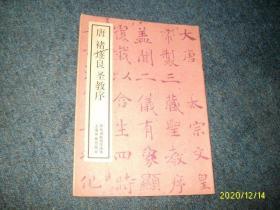 唐 褚遂良 圣教序
大唐太宗文皇
帝製三藏聖教序
盖聞二儀有象顯
覆載以含生四時
2020/12/14